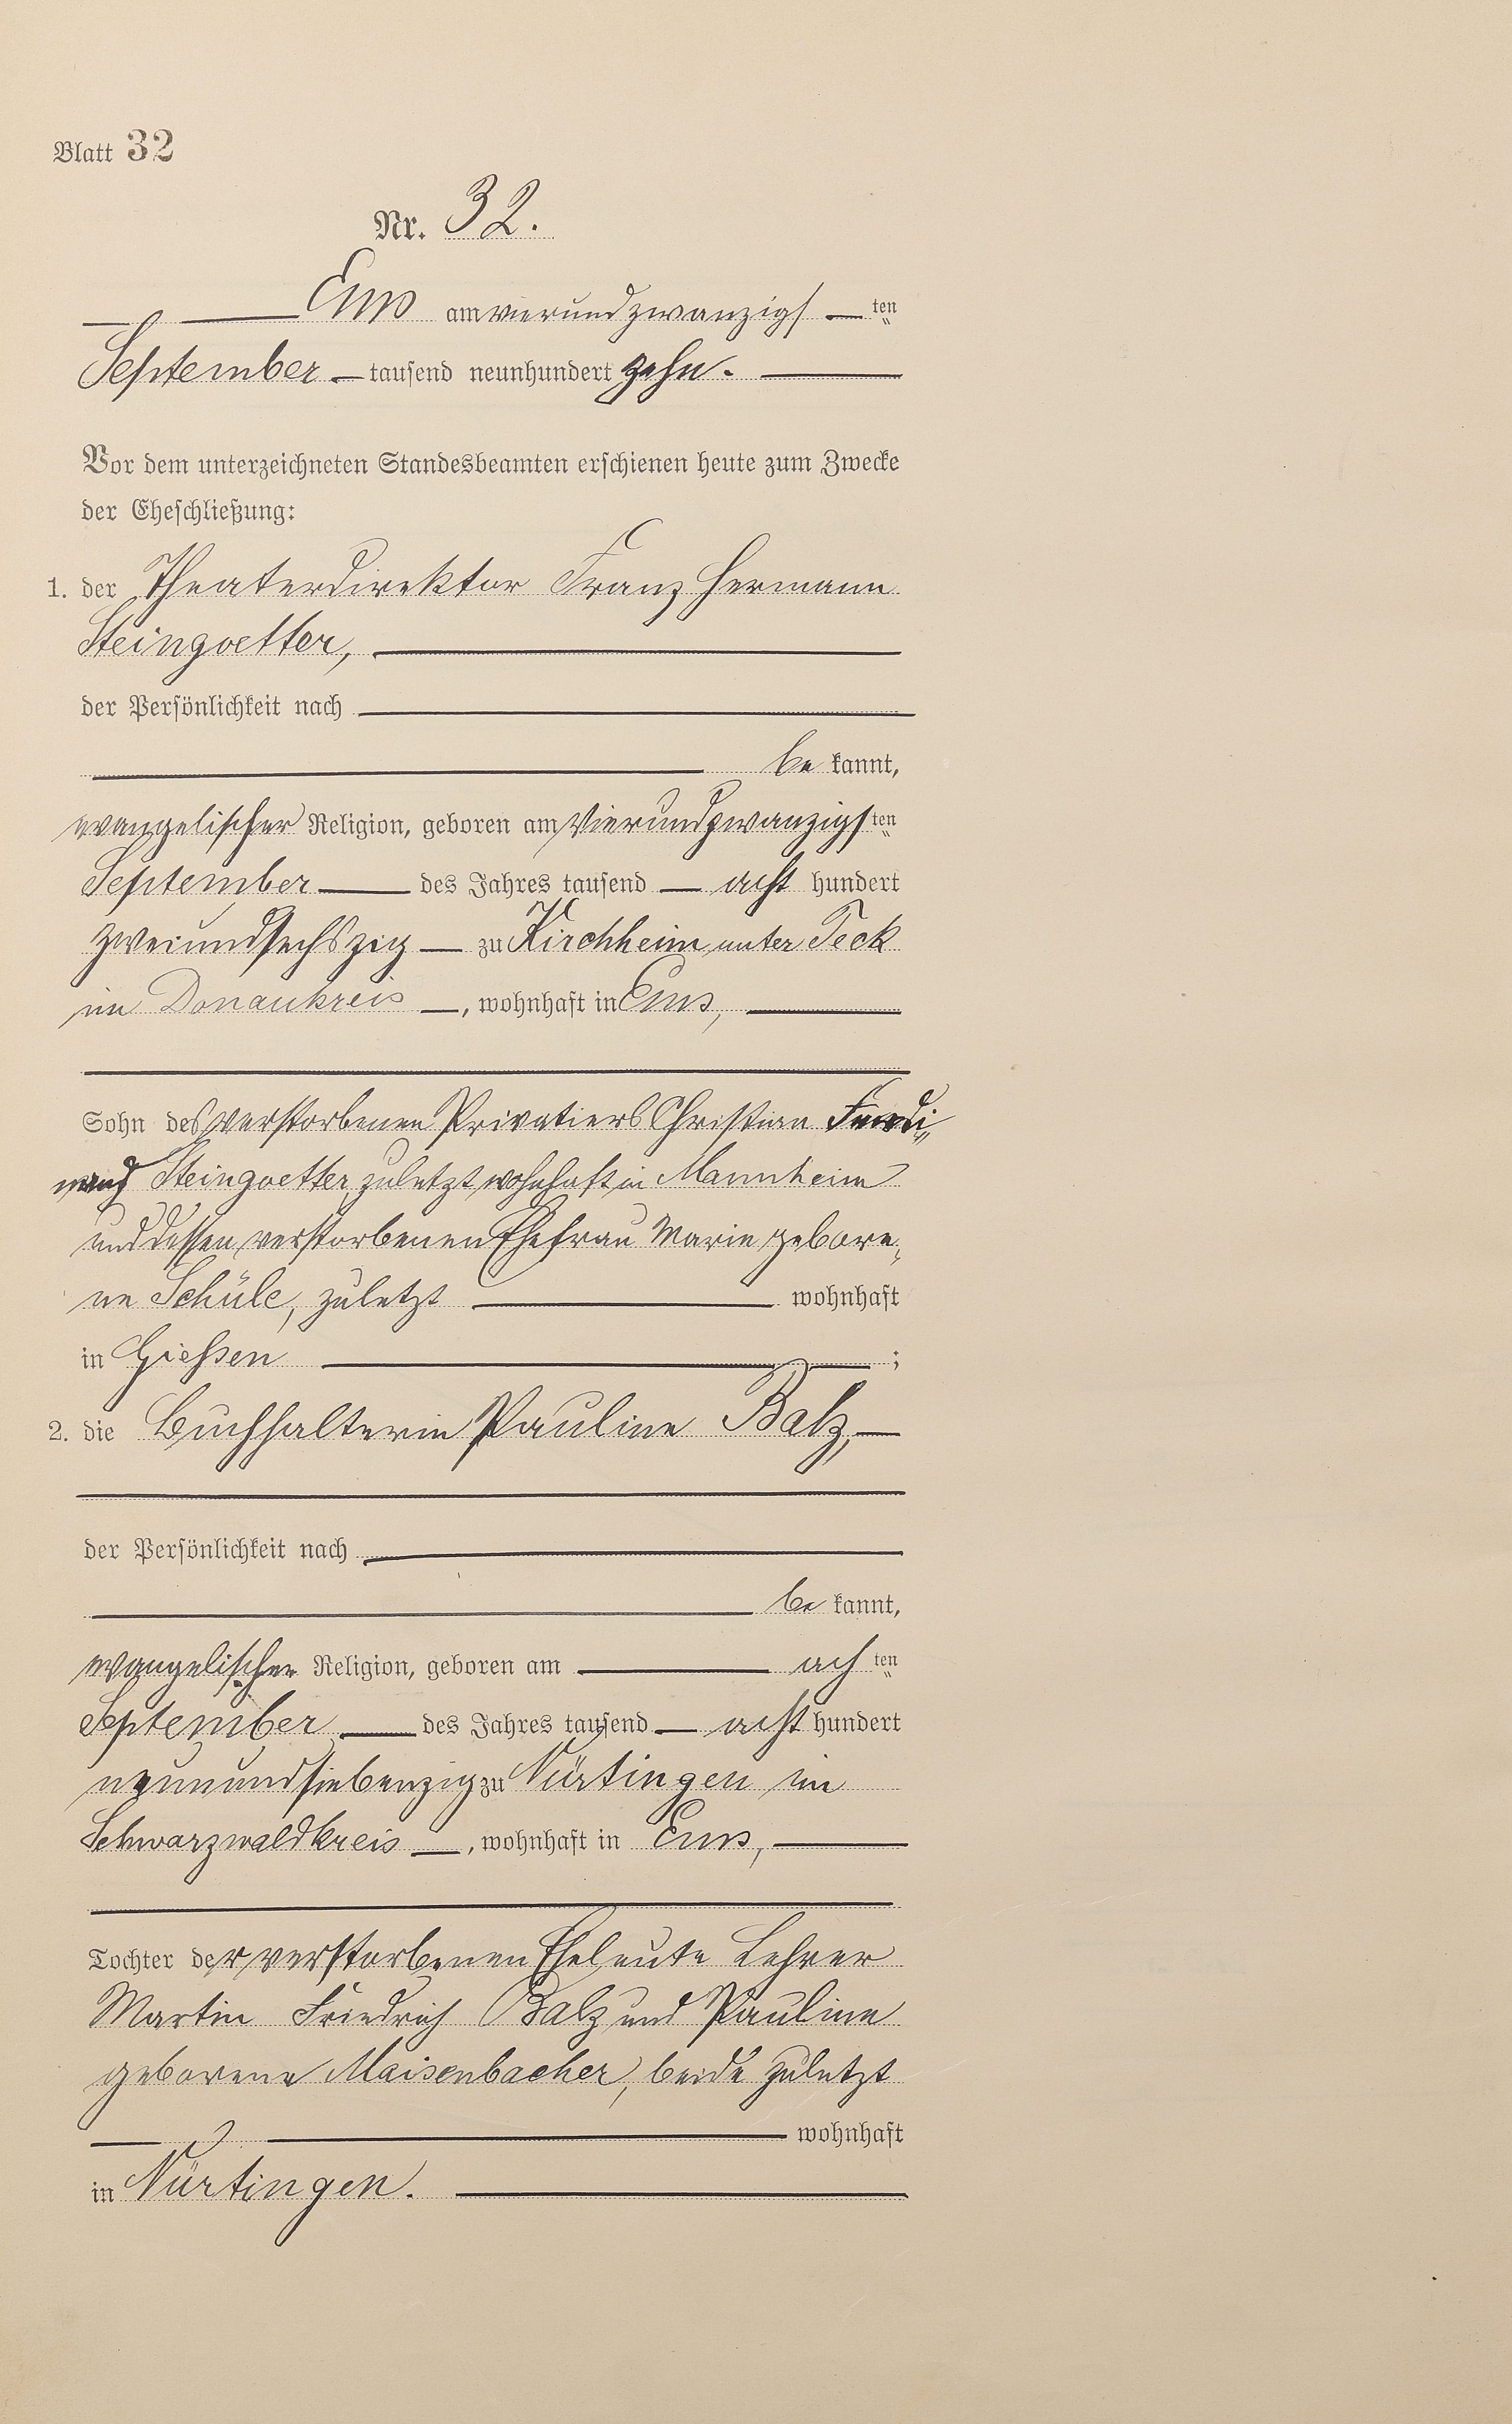 Blatt 32
Nr. 32.
Ems am vierundzwanzigsten
September tausend neunhundert zehn.
Vor dem unterzeichneten Standesbeamten erschienen heute zum Zwecke
der Eheschließung:
1. der Theaterdirektor Franz Hermann
Steingoetter,
der Persönlichkeit nach
bekannt,
evangelischer Religion, geboren am vierundzwanzigsten
September des Jahres tausend acht hundert
zweiundsechszig zu Kirchheim unter Teck
im Donaukreis, wohnhaft in Ems,
Sohn des verstorbenen Privatiers Christian Ferdi„
nand Steingoetter, zuletzt wohnhaft in Mannheim
und dessen verstorbenen Ehefrau Marie gebore„
ne Schüle, zuletzt wohnhaft
in Giessen ;
2. die Buchhalterin Pauline Balz,
der Persönlichkeit nach
bekannt,
evangelischer Religion, geboren am achten
September des Jahres tausend acht hundert
neunundsiebenzig zu Nürtingen im
Schwarzwaldkreis, wohnhaft in Ems,
Tochter der verstorbenen Eheleute Lehrer
Martin Friedrich Balz und Pauline
geborene Maisenbacher, beide zuletzt
wohnhaft
in Nürtingen.